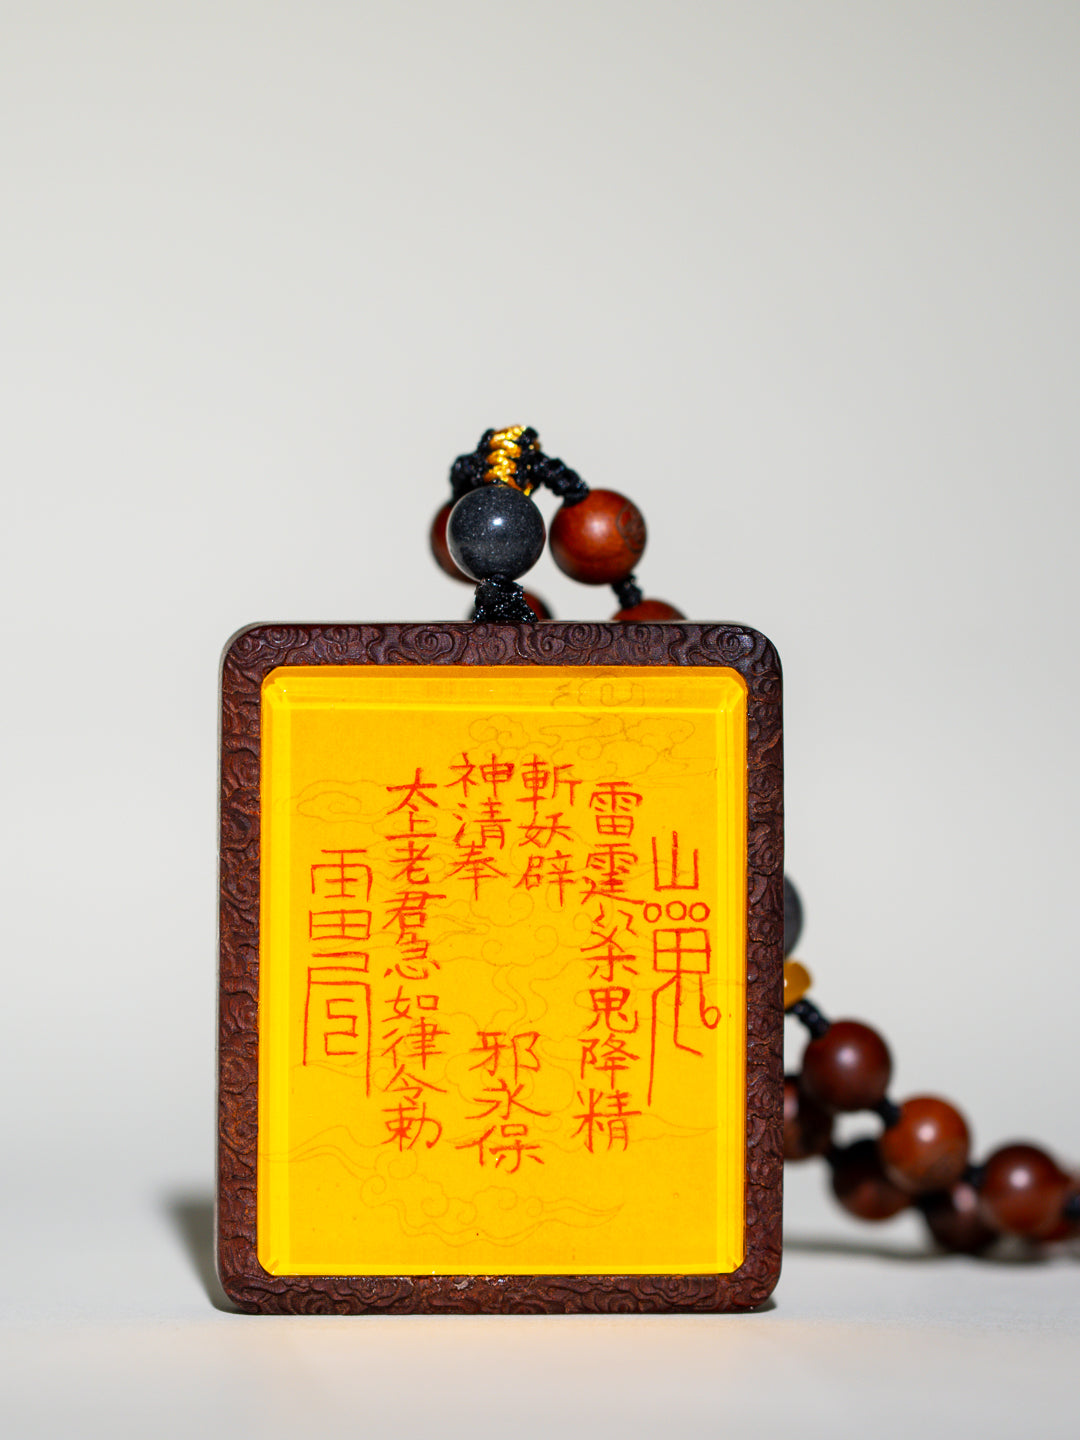 雷霆杀鬼降精
斬妖辟
邪永保
神清奉
太上老君急如律令勅
雷局